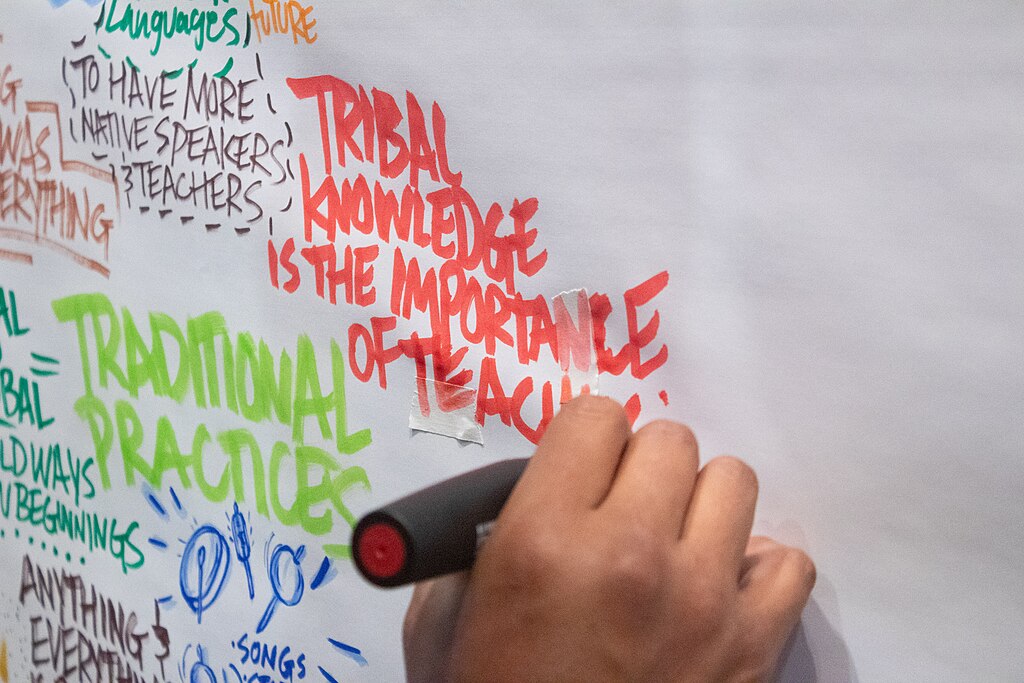 Languages
FUTURE
TO HAVE MORE
NATIVE SPEAKERS
& TEACHERS
WAS
TRIBAL
KNOWLEDGE
IS THE IMPORTANCE
OF
TRADITIONAL
PRACTICES
WAYS
BEGINNINGS
ANYTHING &
SONGS